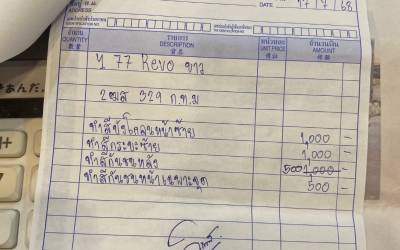 ADDRESS
DATE 17/7/68
จำนวน รายการ หน่วยละ จำนวนเงิน
QUANTITY DESCRIPTION UNIT PRICE AMOUNT
数量 貨名
77 Revo ขาว
2ฒส 329 ก.ท.ม
ทำสีบังโคลนหน้าซ้าย 1,000 -
ทำสีกระบะซ้าย 1,000 -
ทำสีกันชนหลัง 1,000 -
ทำสีกันชนหน้าเฉพาะจุด 500 -